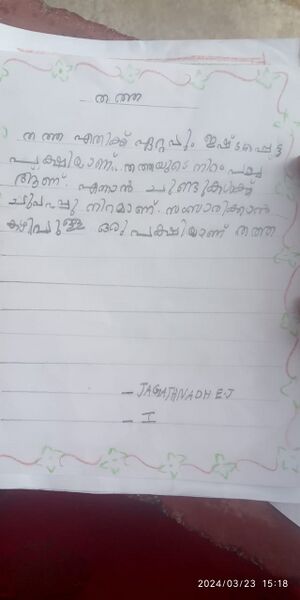 തത്ത
തത്ത എനിക്ക് ഏറ്റവും ഇഷ്ടപ്പെട്ട
പക്ഷിയാണ്. തത്തയുടെ നിറം പച്ച
ആണ്. എന്നാൽ ചുണ്ടുകൾക്ക്
ചുവപ്പു നിറമാണ്. സംസാരിക്കാൻ
കഴിവു ഒരു പക്ഷിയാണ് തത്ത
- JAGATHNADH E.J
- I
2024/03/23 15:18